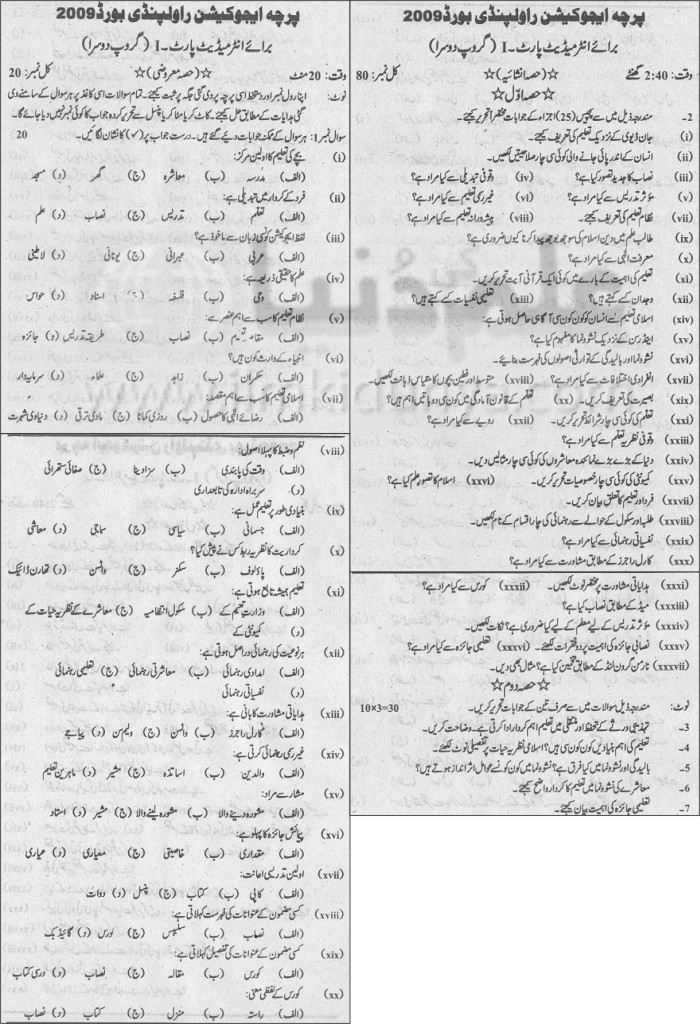 پرچہ ایجوکیشن راولپنڈی بورڈ 2009
برائے انٹرمیڈیٹ پارٹ۔I (گروپ دوسرا)
وقت: 20 منٹ ☆(حصہ معروضی)☆ کل نمبر: 20
نوٹ: اپنا رول نمبر اور دستخط اسی پرچہ پر دی گئی جگہ پر ثبت کیجئے۔ تمام سوالات اسی کاغذ پر ہر سوال کے سامنے دی
گئی ہدایات کے مطابق حل کیجئے۔ کاٹ کر یا مٹا کر یا پنسل سے تحریر کردہ جواب کا کوئی نمبر نہیں دیا جائے گا۔
سوال نمبر 1: ہر سوال کے ممکنہ جوابات دیئے گئے ہیں۔ درست جواب پر (✓) کا نشان لگائیں۔ 20
(i) بچے کی تعلیم کا اولین مرکز:
(الف) مدرسہ (ب) معاشرہ (ج) گھر (د) مسجد
(ii) فرد کے کردار میں تبدیلی ہے:
(الف) تعلم (ب) تدریس (ج) نصاب (د) علم
(iii) لفظ ایجوکیشن کونسی زبان سے ماخوذ ہے؟
(الف) عربی (ب) عبرانی (ج) یونانی (د) لاطینی
(iv) علم کا حقیقی ذریعہ ہے:
(الف) وحی (ب) فلسفہ (ج) استاد (د) حواس
(v) نظام تعلیم کا سب سے اہم عنصر ہے:
(الف) مقاصد تعلیم (ب) نصاب (ج) طریقہ تدریس (د) جائزہ
(vi) انبیاء کے وارث کون ہیں؟
(الف) حکمران (ب) زاہد (ج) علماء (د) سرمایہ دار
(vii) اسلامی تعلیم کا سب سے اہم مقصد:
(الف) رضائے الٰہی کا حصول (ب) روزی کمانا (ج) مادی ترقی (د) دنیاوی شہرت
(viii) نظم و ضبط کا پہلا اصول:
(الف) وقت کی پابندی (ب) سزا دینا (ج) صفائی ستھرائی
(د) سربراہ ادارہ کی تابعداری
(ix) بنیادی طور پر تعلیم عمل ہے:
(الف) جسمانی (ب) سیاسی (ج) سماجی (د) معاشی
(x) کرداریت کا نظریہ کس نے پیش کیا؟
(الف) پاولوف (ب) سکنر (ج) واٹسن (د) تھارن ڈائیک
(xi) تعلیم ہمیشہ تابع ہوتی ہے:
(الف) وزارت تعلیم کے (ب) سکول انتظامیہ (ج) معاشرے کے نظریہ حیات کے
(د) کمیونٹی کے
(xii) ہر نوعیت کی رہنمائی دراصل ہوتی ہے:
(الف) امدادی رہنمائی (ب) معاشرتی رہنمائی (ج) تعلیمی رہنمائی
(د) نفسیاتی رہنمائی
(xiii) ہدایاتی مشاورت کا بانی ہے:
(الف) کارل راجرز (ب) واٹسن (ج) ولیم سن (د) پیاجے
(xiv) غیر رسمی رہنمائی کرتی ہے:
(الف) والدین (ب) اساتذہ (ج) مشیر (د) ماہرین تعلیم
(xv) مشار سے مراد:
(الف) مشورہ دینے والا (ب) مشورہ لینے والا (ج) مشیر (د) استاد
(xvi) پیمائش جائزہ کا پہلو ہے:
(الف) مقداری (ب) خاصیتی (ج) معیاری (د) عیاری
(xvii) اولین تدریسی اعانت:
(الف) کاپی (ب) کتاب (ج) پنسل (د) دوات
(xviii) کسی مضمون کے عنوانات کی فہرست کہلاتی ہے:
(الف) نصاب (ب) سلیبس (ج) کورس (د) گائیڈ بک
(xix) کسی مضمون کے عنوانات کی تفصیل کہلاتی ہے:
(الف) کورس (ب) مقالہ (ج) نصاب (د) درسی کتاب
(xx) کورس کے لفظی معنی:
(الف) راستہ (ب) منزل (ج) کتاب (د) نصاب
پرچہ ایجوکیشن راولپنڈی بورڈ 2009
برائے انٹرمیڈیٹ پارٹ۔I (گروپ دوسرا)
وقت: 2:40 گھنٹے ☆(حصہ انشائیہ)☆ کل نمبر: 80
☆حصہ اوّل☆
2۔ مندرجہ ذیل میں سے پچیس (25) اجزاء کے جوابات مختصراً تحریر کیجئے۔
(i) جان ڈیوی کے نزدیک تعلیم کی تعریف کیجئے۔
(ii) انسان کے اندر پائی جانے والی کوئی سی چار صلاحیتیں لکھیں۔
(iii) نصاب کا جدید تصور کیا ہے؟ (iv) وقوفی تبدیلی سے کیا مراد ہے؟
(v) مؤثر تدریس سے کیا مراد ہے؟ (vi) غیر رسمی تعلیم سے کیا مراد ہے؟
(vii) نظام تعلیم کی تعریف کیجئے۔ (viii) پیشہ ورانہ تعلیم سے کیا مراد ہے؟
(ix) طالب علم میں دین اسلام کی سوجھ بوجھ پیدا کرنا کیوں ضروری ہے؟
(x) معرفت الٰہی سے کیا مراد ہے؟
(xi) تعلیم کی اہمیت کے بارے میں کوئی ایک قرآنی آیت تحریر کریں۔
(xii) وجدان کسے کہتے ہیں؟ (xiii) تعلیمی نفسیات کسے کہتے ہیں؟
(xiv) اسلامی تعلیم سے انسان کو کون کون سی آگاہی حاصل ہوتی ہے:
(xv) اینڈرسن کے نزدیک نشوونما کا مفہوم کیا ہے؟
(xvi) نشوونما اور بالیدگی کے توارثی اصولوں کی فہرست بنائیے۔
(xvii) انفرادی اختلافات سے کیا مراد ہے؟ (xviii) متوسط اور فطین بچوں کا مقیاس ذہانت لکھیں۔
(xix) بصیرت کی تعریف کریں۔ (xx) تعلم کے قانون آمادگی میں کون سی دو باتیں اہم ہیں؟
(xxi) تعلم کی کوئی سی چار شرائط تحریر کریں۔ (xxii) رویے سے کیا مراد ہے؟
(xxiii) وقوفی نظریہ تعلم سے کیا مراد ہے؟
(xxiv) دنیا کے بڑے بڑے نمائندہ معاشروں کی کوئی سی چار مثالیں دیں۔
(xxv) کمیونٹی کی کوئی سی چار خصوصیات تحریر کریں۔ (xxvi) اسلام کا تصور علم کیا ہے؟
(xxvii) فرد اور تعلیم کا تعلق بیان کریں۔
(xxviii) طلباء اور سکول کے حوالے سے رہنمائی کی چار اقسام کے نام لکھیں۔
(xxix) نفسیاتی رہنمائی سے کیا مراد ہے؟
(xxx) کارل راجرز کے مطابق مشاورت سے کیا مراد ہے؟
(xxxi) ہدایاتی مشاورت پر مختصر نوٹ لکھیں۔ (xxxii) کورس سے کیا مراد ہے؟
(xxxiii) میڈ کے مطابق نصاب کیا ہے؟
(xxxiv) مؤثر تدریس کے لیے معلم کے لیے کیا ضروری ہے؟ نکات لکھیں۔
(xxxv) نصابی جائزہ کی اہمیت پر دو فقرات لکھئے۔ (xxxvi) تعلیمی جائزہ سے کیا مراد ہے؟
(xxxvii) نارمن گرون لنڈ کے مطابق تخمین کیا ہے؟ مثال بھی دیں۔
☆حصہ دوم☆
نوٹ: مندرجہ ذیل سوالات میں سے صرف تین کے جوابات تحریر کریں۔ 10×3=30
3۔ تہذیبی ورثے کے تحفظ اور منتقلی میں تعلیم اہم کردار ادا کرتی ہے۔ وضاحت کریں۔
4۔ تعلیم کی اہم بنیادیں کون کون سی ہیں؟ اسلامی نظریہ حیات پر تفصیلی نوٹ لکھئے۔
5۔ بالیدگی اور نشوونما میں کیا فرق ہے؟ نشوونما میں کون کونسے عوامل اثر انداز ہوتے ہیں؟
6۔ معاشرے کی نشوونما میں تعلیم کا کردار واضح کیجئے۔
7۔ تعلیمی جائزہ کی اہمیت بیان کیجئے۔